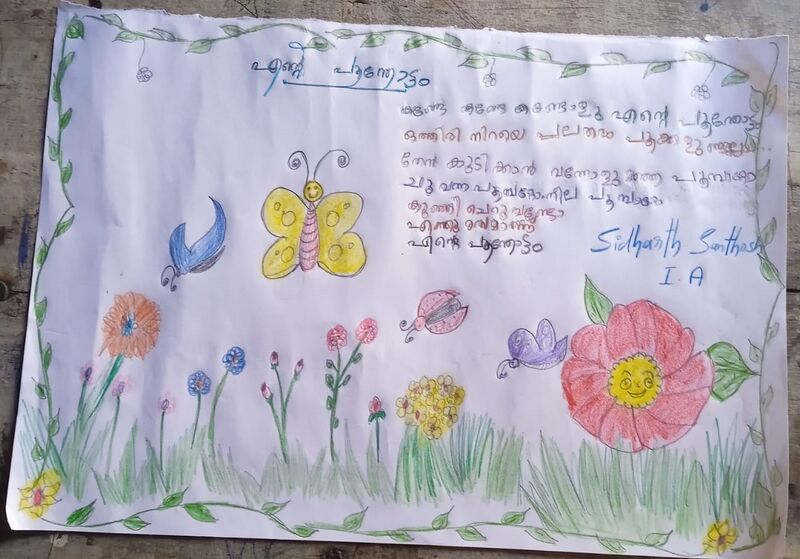 എൻ്റെ പൂന്തോട്ടം
കണ്ടോ കണ്ടോ കണ്ടോളു എൻ്റെ പൂന്തോട്ടം
ഒത്തിരി നിറയെ പലതരം പൂക്കളു
തേൻ കുടിക്കാൻ വന്നോളു മഞ്ഞ പൂമ്പാറ്റേ
ചുവന്ന പൂമ്പാറ്റേ നീല പൂമ്പാറ്റേ
കുഞ്ഞി ചെറു വണ്ടേ
എന്തു രസമാണ്
എൻ്റെ പൂന്തോട്ടം
Sidharth Santhosh
I A